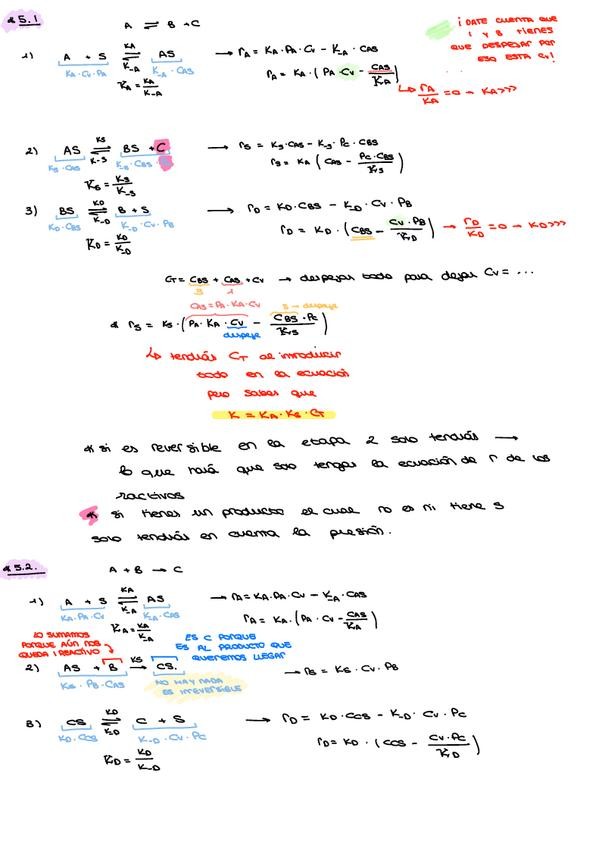 5.1 A ⇌ B + C
¡ DATE CUENTA QUE
1 Y B TIENES
QUE DESPEJAR POR
ESO ESTA Cv!
1) A + S ⇌ AS → rA = KA · PA · Cv - K-A · CAS
KA
K-A
KA · Cv · PA K-A · CAS
KA = KA/K-A
rA = KA · (PA Cv - CAS/KA)
↳ rA/KA = 0 → KA>>>
2) AS ⇌ BS + C → rS = KS · CAS - K-S · PC · CBS
KS
K-S
KS · CAS K-S · CBS
KS = KS/K-S
rS = KA (CAS - PC · CBS/KS)
3) BS ⇌ B + S → rD = KD · CBS - K-D · Cv · PB
KD
K-D
KD · CBS K-D · Cv · PB
KD = KD/K-D
rD = KD · (CBS - Cv · PB/KD) → rD/KD = 0 → KD>>>
CT = CBS + CAS + Cv → despejar todo para dejar Cv = ...
3 1
CAS = PA · KA · Cv 3 → despeje
* rS = KS · (PA · KA · Cv - CBS · PC/KS)
despeje
↳ tendrás CT al introducir
todo en la ecuación
pero sabes que
K = KA · KS · CT
* si es reversible en la etapa 2 solo tendrás →
lo que hará que solo tengas la ecuación de r de los
reactivos
* si tienes un producto el cual no es ni tiene S
solo tendrás en cuenta la presión.
5.2. A + B → C
1) A + S ⇌ AS → rA = KA · PA · Cv - K-A · CAS
KA
K-A
KA · PA · Cv K-A · CAS
KA = KA/K-A
rA = KA · (PA · Cv - CAS/KA)
LO SUMAMOS
PORQUE AÚN NOS
QUEDA 1 REACTIVO
ES C PORQUE
ES AL PRODUCTO QUE
QUEREMOS LLEGAR
2) AS + B → CS. → rS = KS · Cv · PB
KS
KS · PB · CAS
NO HAY NADA
ES IRREVERSIBLE
3) CS ⇌ C + S → rD = KD · CCS - K-D · Cv · PC
KD
K-D
KD · CCS K-D · Cv · PC
KD = KD/K-D
rD = KD · (CCS - Cv · PC/KD)